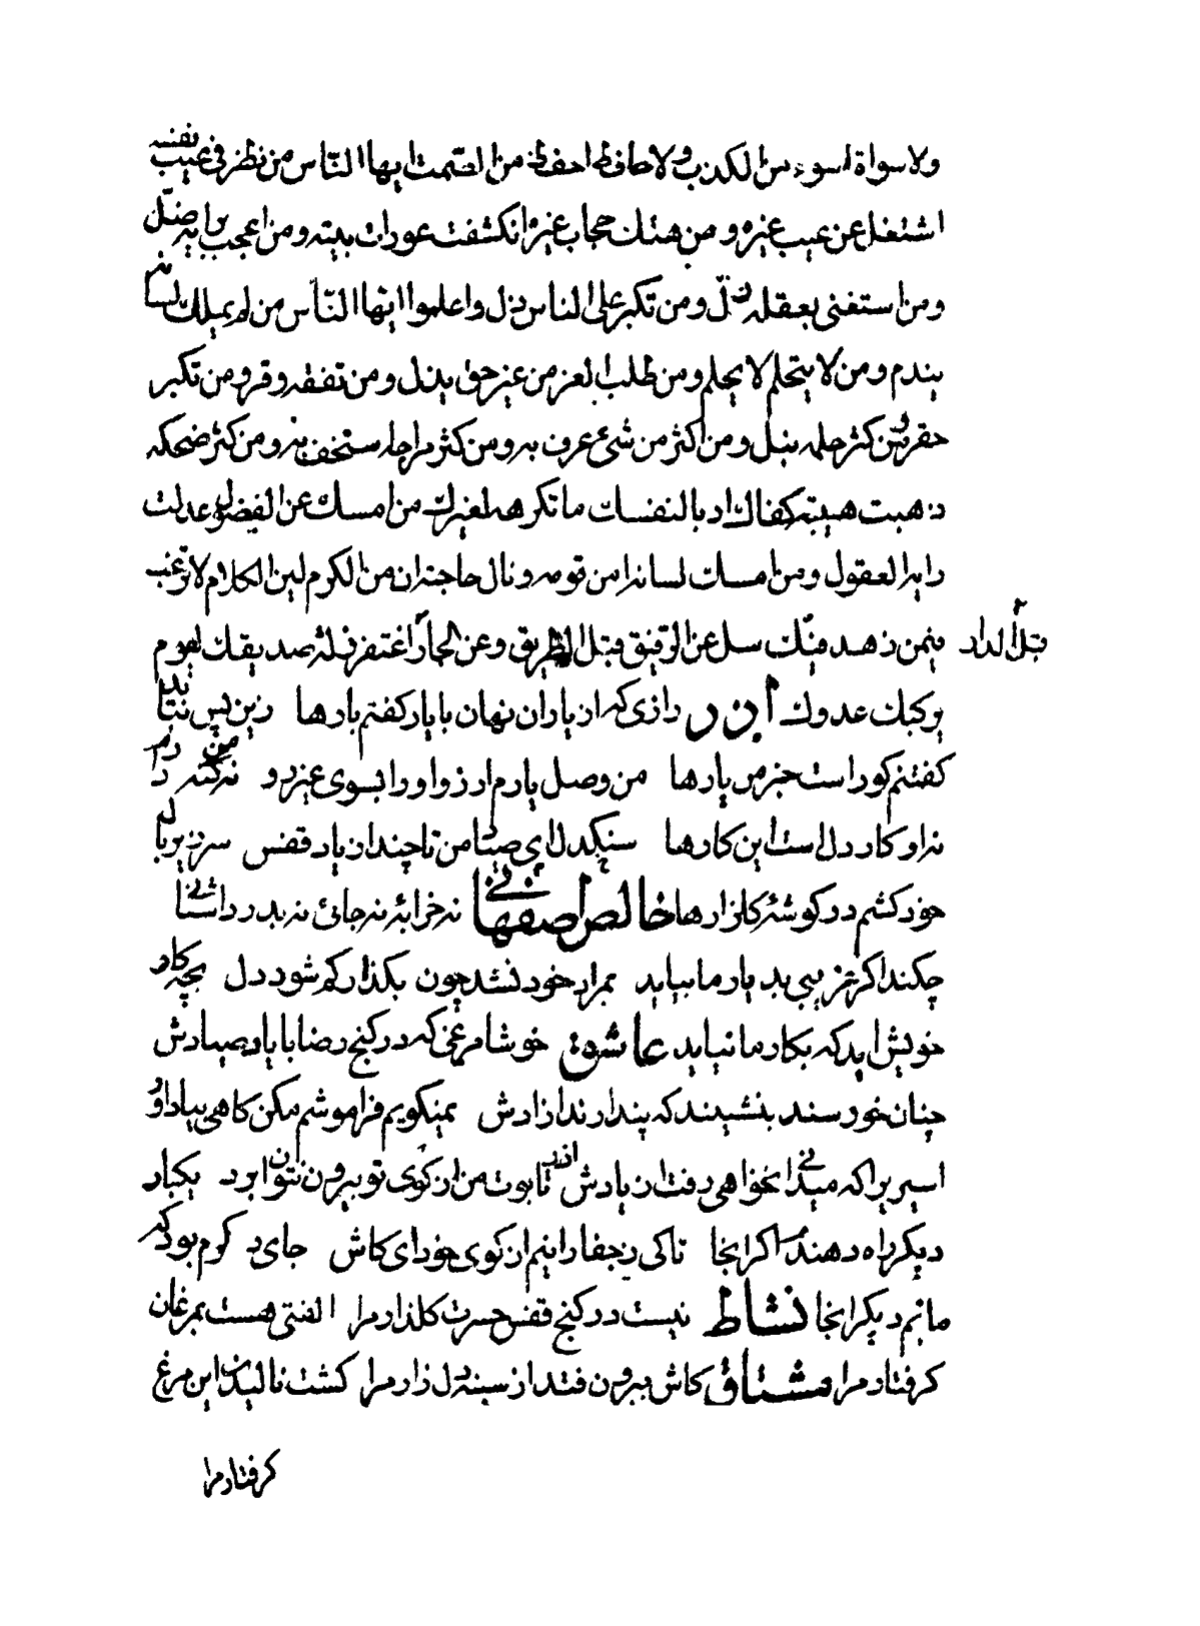 ولا سواة اسوء من الكذب ولا حافظ احفظ من الصّمت ايها النّاس من نظر فى عيب نفسه
اشتغل عن عيب غيره و من هتك حجاب غيره انكشفت عورات بيته ومن اعجب برايه ضلّ
ومن استغنى بعقله زلّ ومن تكبر على الناس ذل واعلموا ايّها النّاس من لم يملك لسانه
يندم ومن لا يتحلم لا يحلم ومن طلب العز من غير حق يذل ومن تفقه وقر ومن تكبر
حقر ومن كثر حلمه نبل ومن اكثر من شئ عرف به ومن كثر مزاحه ستخف به ومن كثر ضحكه
ذهبت هيبته كفاك ادبا لنفسك ما تكرهه لغيرك من امسك عن الفضول عدلت
رايه العقول ومن امسك لسانه امن قومه ونال حاجته ان من الكرم لين الكلام لا ترغب
فيمن زهد منك سل عن الرفيق قبل الطريق وعن الجار قبل الدار اغتفر زلة صديقك ليوم
يركبك عدوك آذر رازى كه از ياران نهان با يار كفتم بارها زين پس نتابد
كفتنم كو راست جز من يارها من وصل يارم ارزو او را بسوى غير رو نه كنه من دارم
نه او كار دل است اين كارها سنكدل اى صيّاد من تا چند از ياد قفس سر زير بال
خود كشم در كوشۀ كلزارها خالص اصفهانى نه خرابۀ نه جائ نه بدر داشنائى
چكند اكر غريبى بديار ما بيايد بمراد خود نشد چون بكذار كم شود دل بچه كار
خويش ايد كه بكار ما نيايد عاشق خوشا مرغى كه در كنج رضا با ياد صيادش
چنان خورسند بنشيند كه پندارند ازادش نميكويم فراموشم مكن كاهى بياد اور
اسيرى را كه ميدانى نخواهى رفت از يادش اذر تابوت من از كوى تو بيرون نتوان برد يكبار
ديكر راه دهندم اكر انجا تا كى ز جفا رانيم از كوى خود اى كاش جاى دكرم بود كه
مانم ديكر انجا نشاط نيست در كنج قفس حسرت كلزار مرا الفتى هست بمرغان
كرفتار مرا مشتاق كاش بيرون فتد از سينه دل زار مرا كشت ناليدن اين مرغ
كرفتار مرا